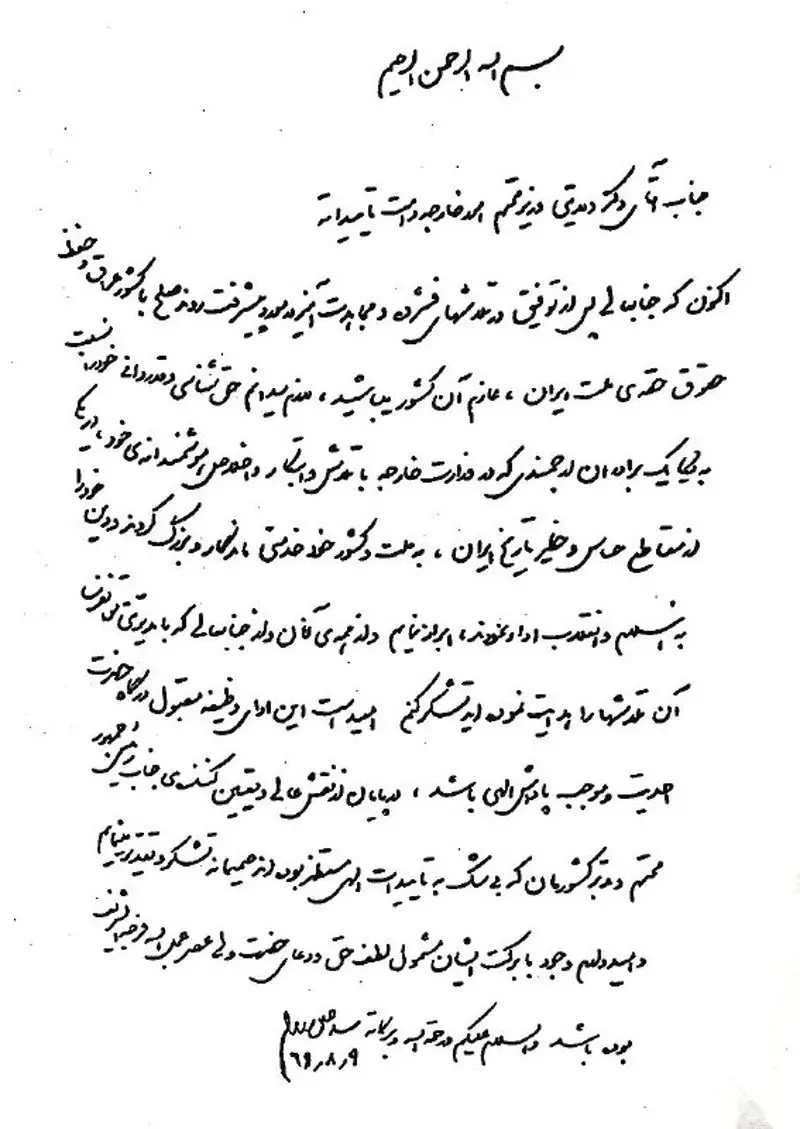 بسم الله الرحمن الرحیم
جناب آقای دکتر ولایتی وزیر محترم امور خارجه دامت تأییداته
اکنون که جنابعالی پس از توفیق در تلاشهای فشرده و مجاهدت آمیز در مورد پیشرفت روند صلح با کشور عراق و حفظ
حقوق حقه‌ی ملت ایران ، عازم آن کشور میباشید ، لازم میدانم حق‌شناسی و قدردانی خود را نسبت
به یکایک برادران ارجمندی که در وزارت خارجه با تلاش و ابتکار و اخلاص هوشمندانه‌ی خود در یکی
از مقاطع حساس و خطیر تاریخ ایران ، به ملت و کشور خود خدمتی ماندگار و بزرگ کردند و دین خود را
به اسلام و انقلاب ادا نمودند ، ابراز نمایم و از همه‌ی آنان و از جنابعالی که با مدیریتی
آن تلاشها را هدایت نموده اید تشکر کنم امید است این ادای وظیفه مقبول درگاه حضرت
احدیت و موجب پاداش الهی باشد ، در پایان از نقش عالی و تعیین کننده‌ی جناب رئیس جمهور
محترم و مدبر کشورمان که بی‌شک به تأییدات الهی مستظهر بوده اند صمیمانه تشکر و تقدیر مینمایم
و امیدوارم وجود با برکت ایشان مشمول لطف حق و دعای حضرت ولی عصر عجل الله فرجه الشریف
بوده باشد والسلام علیکم و رحمة الله و برکاته سید علی
۶۹٫۸٫۹